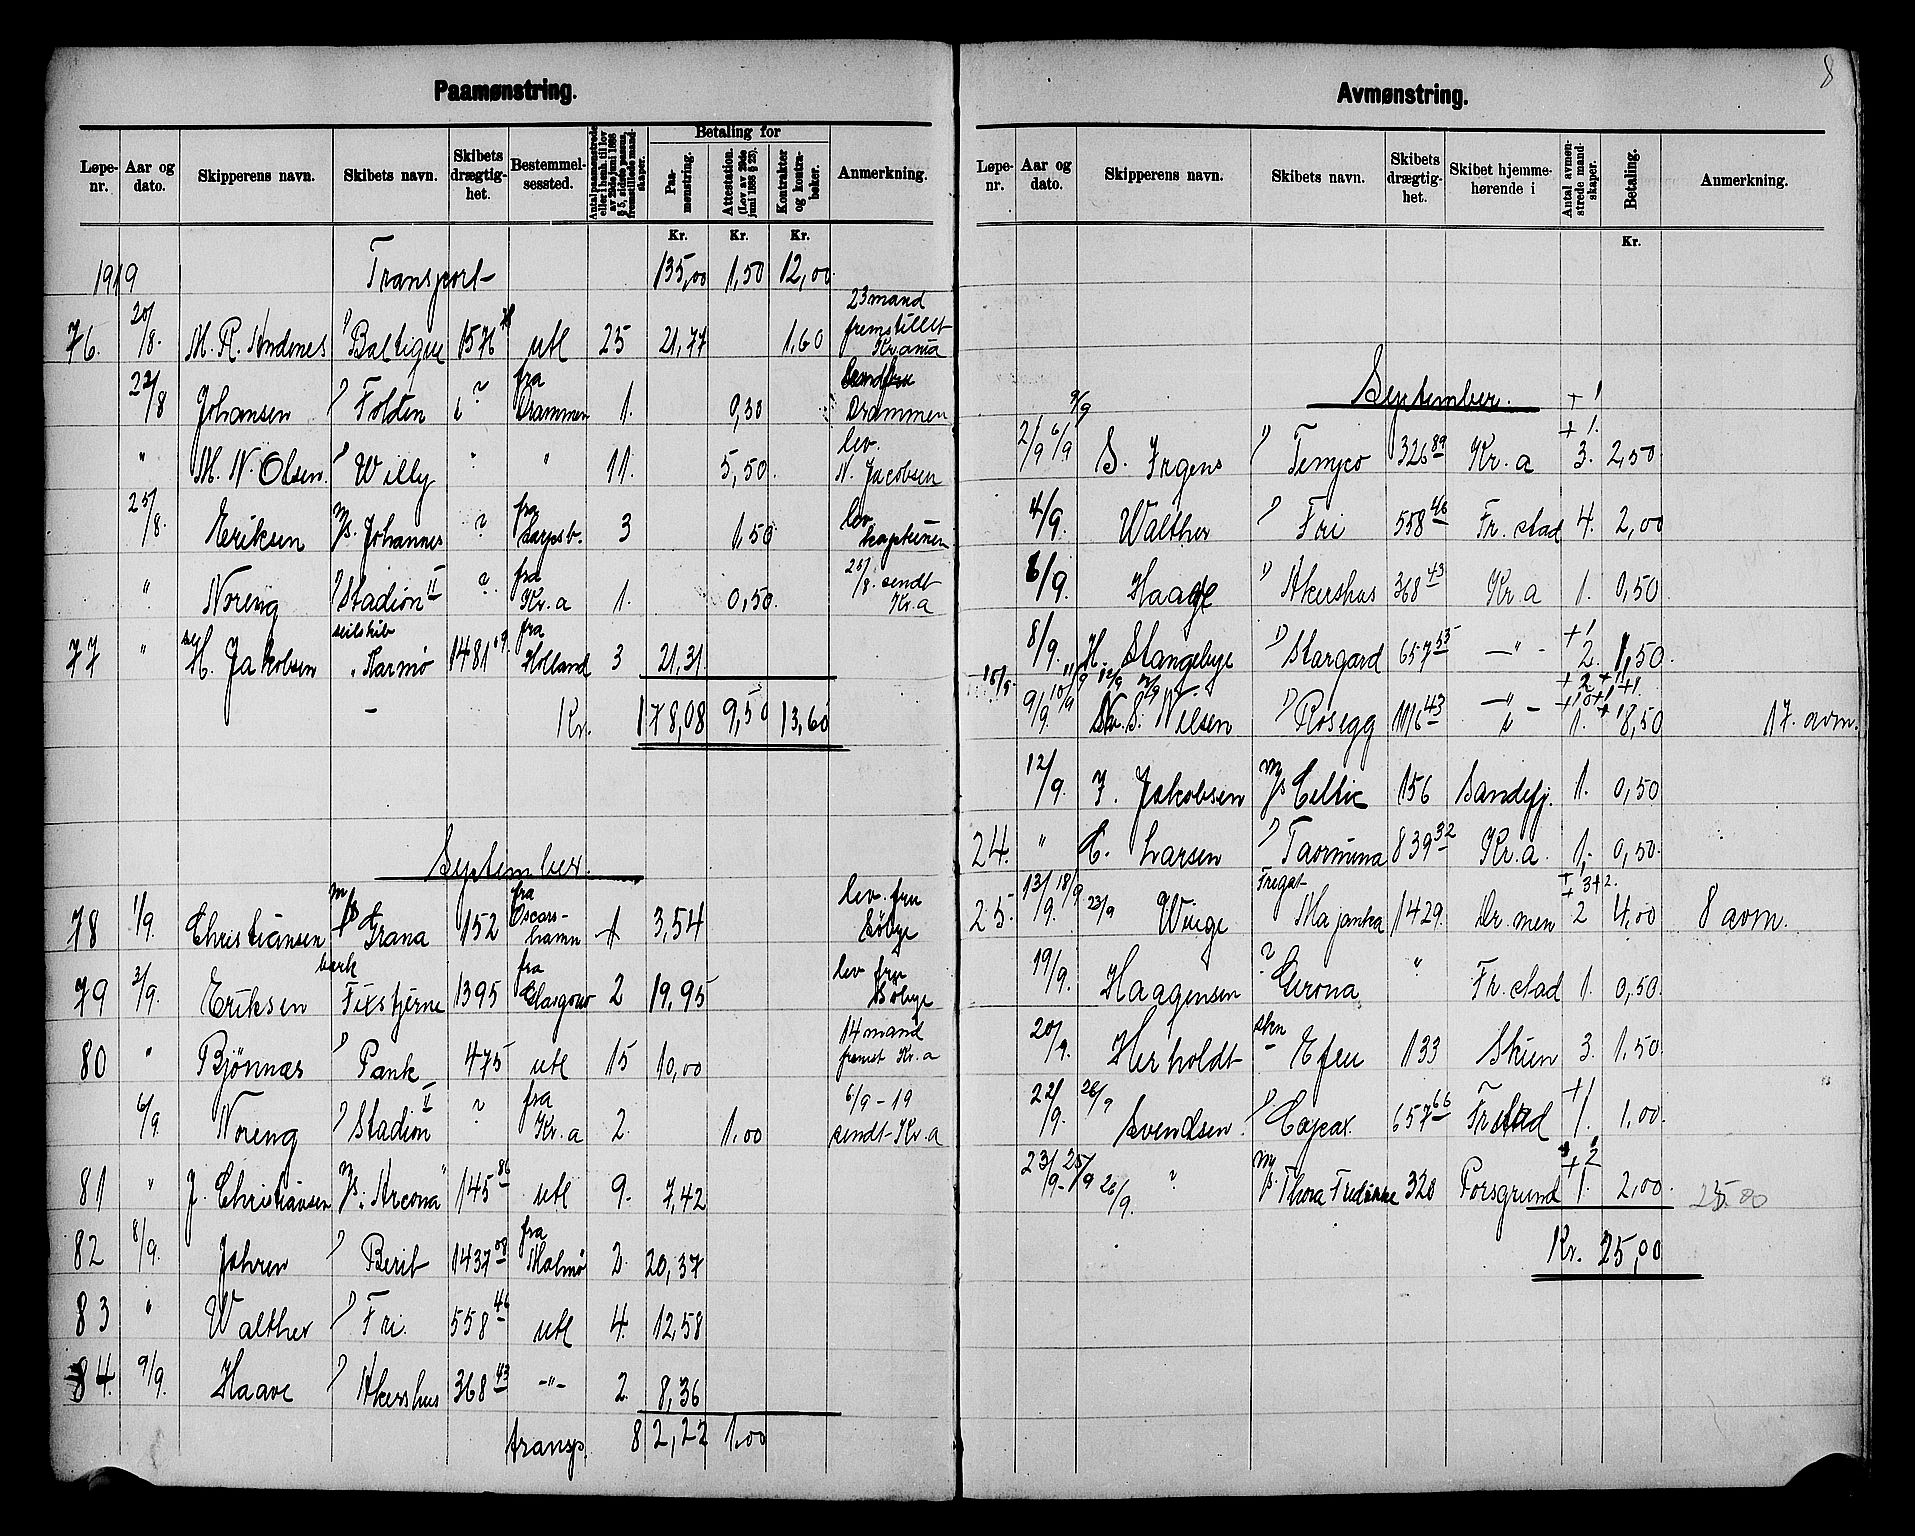 8
Paamønstring.
Løpe-nr. Aar og dato. Skipperens navn. Skibets navn. Skibets drægtig-het. Bestemmel-sessted. Antal paamønstrede eller i henh. til lov av 29de juni 1888 § 5, sidste passus, fremstillede mand-skaper. Betaling for Paa-mønstring. Attestation. (Lov av 29de juni 1888 § 23). Kontrakter og kontra-bøker. Anmerkning.
Kr. Kr. Kr.
1919 Transport 135,00 1,50 12,00
76. 20/8. M. R. Andenes " Baltique 1576 utl 25 21,77 1,60 23 mand fremstillet Kr.ania
22/8 Johansen " Folden ? fra Drammen 1. 0,30 Drammen
" M. N. Olsen. " Willy " " 11. 5,50. lev. N. Jacobsen
25/8. Eriksen m/s. Johannes ? fra Sarpsb. 3 1,50 lev. kapteinen
" Noreng " Stadion II ? fra Kr.a 1. 0,50. 25/8. sendt Kr.a
77 " H. Jakobsen seilskib "Karmø 1481 09 fra Holland 3 21,31.
Kr. 178,08 9,50 13,60
September.
78 1/9. Christiansen m/s Grana 152 fra Oscars-hamn 1 3,54 lev. fru Bölye
79 3/9. Eriksen bark Fixstjerne 1395 fra Glasgow 2 19,95 lev fru Bölye
80 " Bjönnæs " Pank 475 utl 15 10,00 14 mand fremst Kr.a
6/9. Noreng " Stadion II ? fra Kr.a 2. 1.00 6/9-19 sendt Kr.a
81 " J. Christiansen m/s. "Arcona" 145 86 utl 9. 7,42
82 8/9. Jahren " Berit 1437 08 fra Malmø 2. 20,37
83 " Walther " Fri. 558 46 utl 4. 12,58
84. 9/9. Haave " Akershus 368 43 -"- 2. 8,36
transp. 82,22 1.00
Avmønstring.
Løpe-nr. Aar og dato. Skipperens navn. Skibets navn. Skibets drægtig-het. Skibet hjemme-hørende i Antal avmøn-strede mand-skaper. Betaling. Anmerkning.
Kr.
September.
2/9 6/9 9/9 S. Irgens " Temyco 326 89 Kr.a 3. + 1. + 1 2,50
4/9. Walther " Fri 558 46 Fr.stad 4. 2,00
6/9. Haave " Akershus 368 43 Kr.a 1. 0,50.
8/9. H. Stangebye " Stargard 657 55 -"- 2. + 1 1,50.
9/9. 10/9 11/9 12/9 15/9 S. Nilsen " Rosegg 1116 43 -"- 1. 8,50 17. avm.
12/9. J. Jakobsen m/s Celtic 156 Sandefj. 1. 0,50
24. " C. Larsen " Taormina 839 32 Kr.a. 1. 0,50.
25. 13/9. 18/9 23/9 Wiige Fregat Majanka 1429. Dr.men 2 + 3 + 2. 4,00 8 avm.
19/9. Haagensen " Gerona " Fr.stad 1. 0,50.
20/9. Herholdt skn Efeu 133 Skien 3. 1,50.
22/9. 26/9 Svendsen. " Caycax. 657 66 Frstad 1. + 1 1,00.
23/9-25/9 26/9. ? m/s. Thora Fredrikke 320 Porsgrund 1. + 2 2,00. 25.00
Kr. 25,00